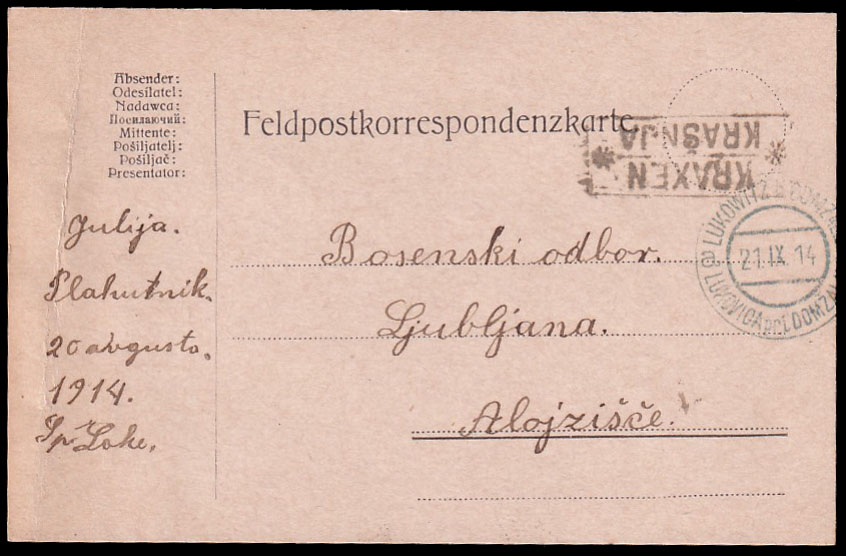 Absender:
Odesílatel:
Nadawca:
Посилаючий:
Mittente:
Pošiljatelj:
Pošiljač:
Presentator:
Feldpostkorrespondenzkarte.
KRAXEN
KRAŠNJA
LUKOWITZ B. DOMZALE
LUKOVICA pri DOMZAL
21. IX. 14
Julija.
Plahutnik.
20 avgusta.
1914.
Sp. Loke.
Bosenski odbor.
Ljubljana.
Alojzišče.